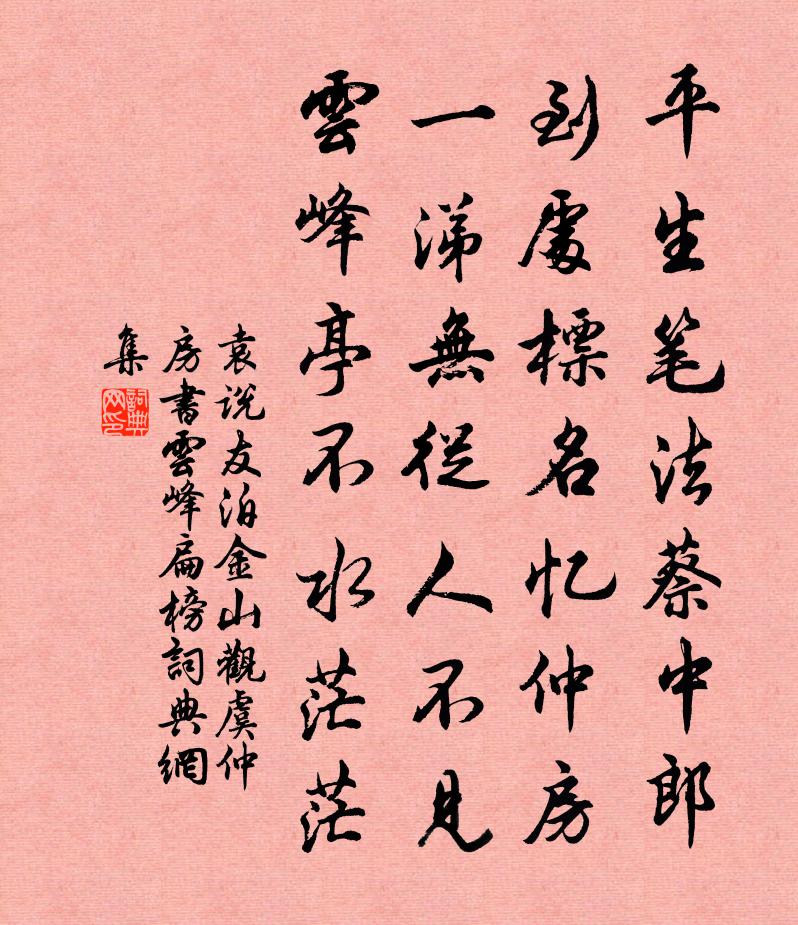 平生笔法蔡中郎
到處標名忆仲房
一涕無從人不見
雲峰亭不水茫茫
袁说友泊金山觀虞仲
房書雲峰扁榜詞典網
集
詞典網印